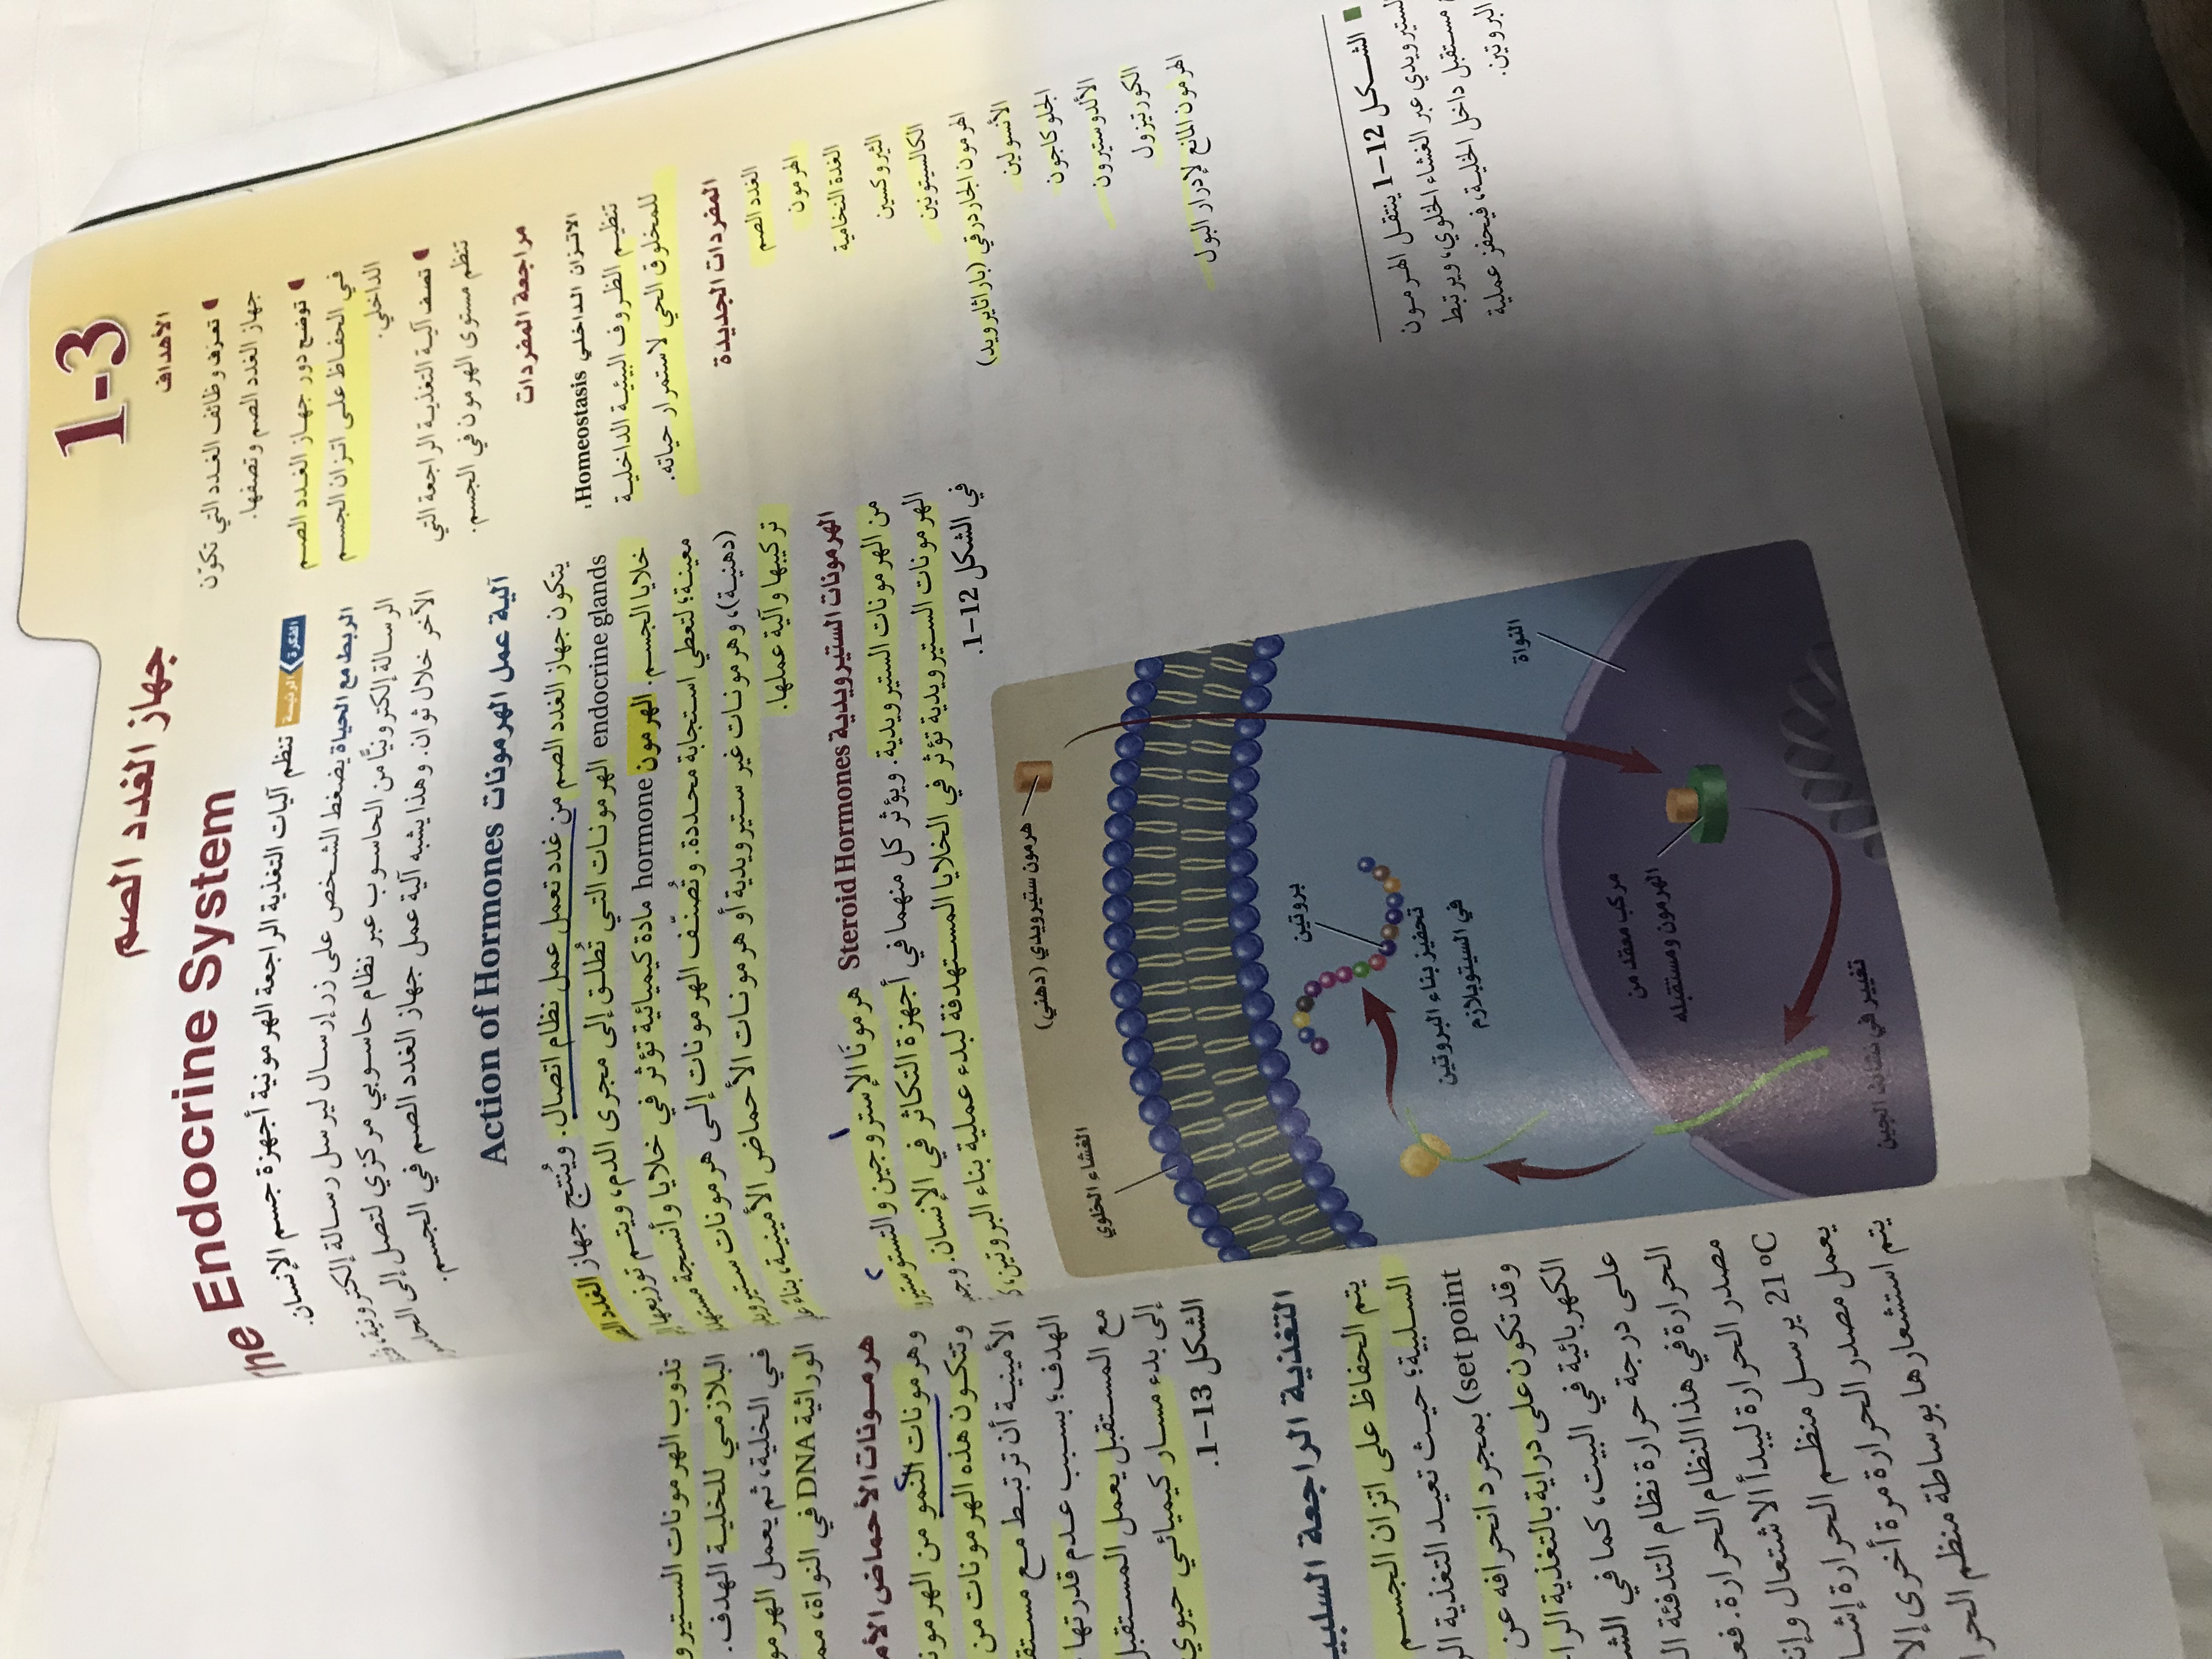 1-3
جهاز الغدد الصم
The Endocrine System
الأهداف
تعرف وظائف الغدد التي تكوّن
جهاز الغدد الصم وتصفها.
توضح دور جهاز الغدد الصم
في الحفاظ على اتزان الجسم
الداخلي.
تصف آلية التغذية الراجعة التي
تنظم مستوى الهرمون في الجسم.
مراجعة المفردات
الاتزان الداخلي Homeostasis:
تنظيم الظروف البيئية الداخلية
للمخلوق الحي لاستمرار حياته.
المفردات الجديدة
الغدد الصم
الهرمون
الغدة النخامية
الثيروكسين
الكالسيتونين
الهرمون الجاردرقي (باراثايرويد)
الأنسولين
الجلوكاجون
الألدوستيرون
الكورتيزول
الهرمون المانع لإدرار البول
الفكرة الرئيسة تنظم آليات التغذية الراجعة الهرمونية أجهزة جسم الإنسان.
الربط مع الحياة يضغط الشخص على زر إرسال ليرسل رسالة إلكترونية،
الرسالة إلكترونيًّا من الحاسوب عبر نظام حاسوبي مركزي لتصل إلى
الآخر خلال ثوان. وهذا يشبه آلية عمل جهاز الغدد الصم في الجسم.
آلية عمل الهرمونات Action of Hormones
يتكون جهاز الغدد الصم من غدد تعمل عمل نظام اتصال. ويُنتج جهاز الغدد
endocrine glands الهرمونات التي تُطلق إلى مجرى الدم، ويتم توزيعها
خلايا الجسم. الهرمون hormone مادة كيميائية تؤثر في خلايا وأنسجة
معينة؛ لتعطي استجابة محددة. وتُصنَّف الهرمونات إلى هرمونات
(دهنية)، وهرمونات غير ستيرويدية أو هرمونات الأحماض الأمينية، بناءً
تركيبها وآلية عملها.
الهرمونات الستيرويدية Steroid Hormones هرمونَا الإستروجين
من الهرمونات الستيرويدية. ويؤثر كل منهما في أجهزة التكاثر في الإنسان.
الهرمونات الستيرويدية تؤثر في الخلايا المستهدفة لبدء عملية بناء البروتين؛
في الشكل 12-1.
هرمون ستيرويدي (دهني)
الغشاء الخلوي
بروتين
تحفيز بناء البروتين
في السيتوبلازم
النواة
مركب معقد من
الهرمون ومستقبله
تغيير في نشاط الجين
الشكل 12-1 ينتقل الهرمون
الستيرويدي عبر الغشاء الخلوي، ويرتبط
مستقبل داخل الخلية، فيحفز عملية
البروتين.
تذوب الهرمونات
البلازمي للخلية الهدف.
في الخلية، ثم يعمل
الوراثية DNA في النواة،
هرمونات الأحماض
وهرمونات النمو من
وتتكون هذه الهرمونات من
الأمينية أن ترتبط مع
الهدف؛ بسبب عدم قدرتها
مع المستقبل يعمل المستقبل
إلى بدء مسار كيميائي حيوي
الشكل 13-1.
التغذية الراجعة
يتم الحفاظ على اتزان الجسم
السلبية؛ حيث تعيد التغذية
set point) بمجرد انحرافه عن
وقد تكون على دراية بالتغذية
الكهربائية في البيت، كما في
على درجة حرارة نظام التدفئة
الحرارة في هذا النظام الحرارة.
مصدر الحرارة ليبدأ الاشتعال
21°C يرسل منظم
يعمل مصدر الحرارة مرة أخرى
يتم استشعارها بوساطة منظم